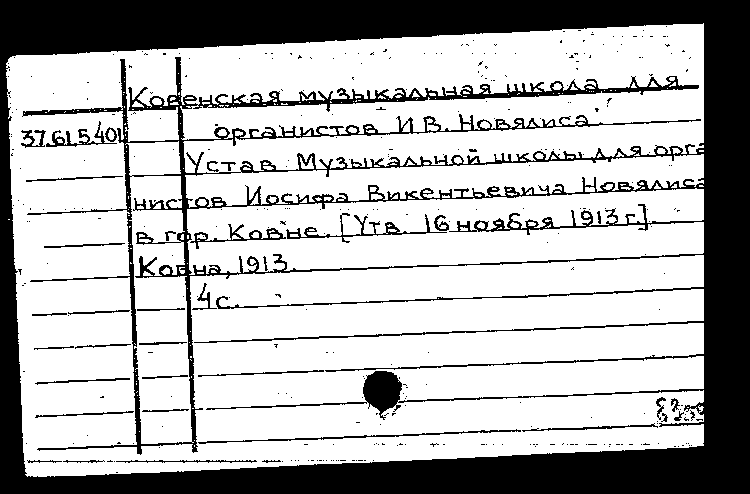 Ковенская музыкальная школа для
37.61.5.401 органистов И.В. Новялиса.
Устав Музыкальной школы для орга
нистов Иосифа Викентьевича Новялиса
в гор. Ковне. [Утв. 16 ноября 1913 г.].
Ковна, 1913.
4 с.